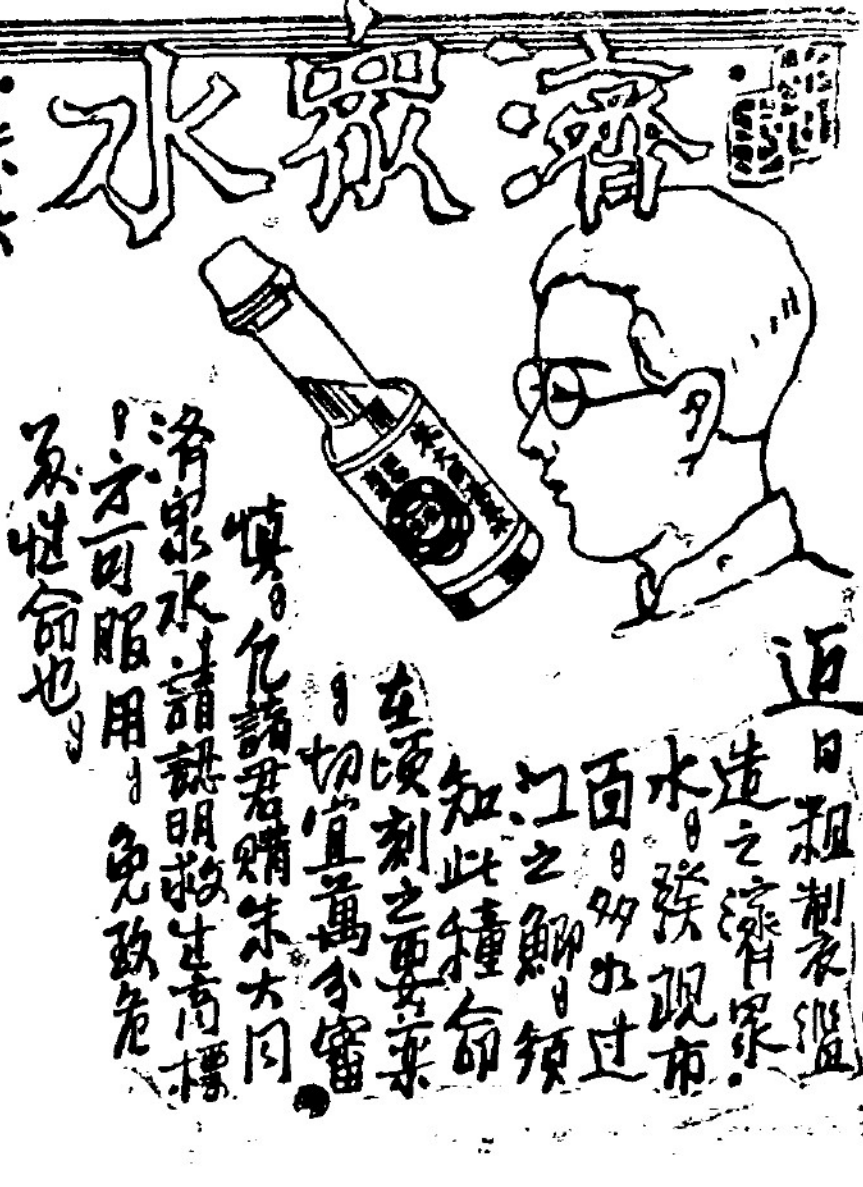 濟眾水
近日粗制裂濫
造之濟眾
水。發現市
面。多如过
江之鯽。須
知此種命
在頃刻之要葯
。切宜萬分審
慎。凡諸君購朱大同
濟眾水請認明救生商標
。方可服用。免致危
及性命也。